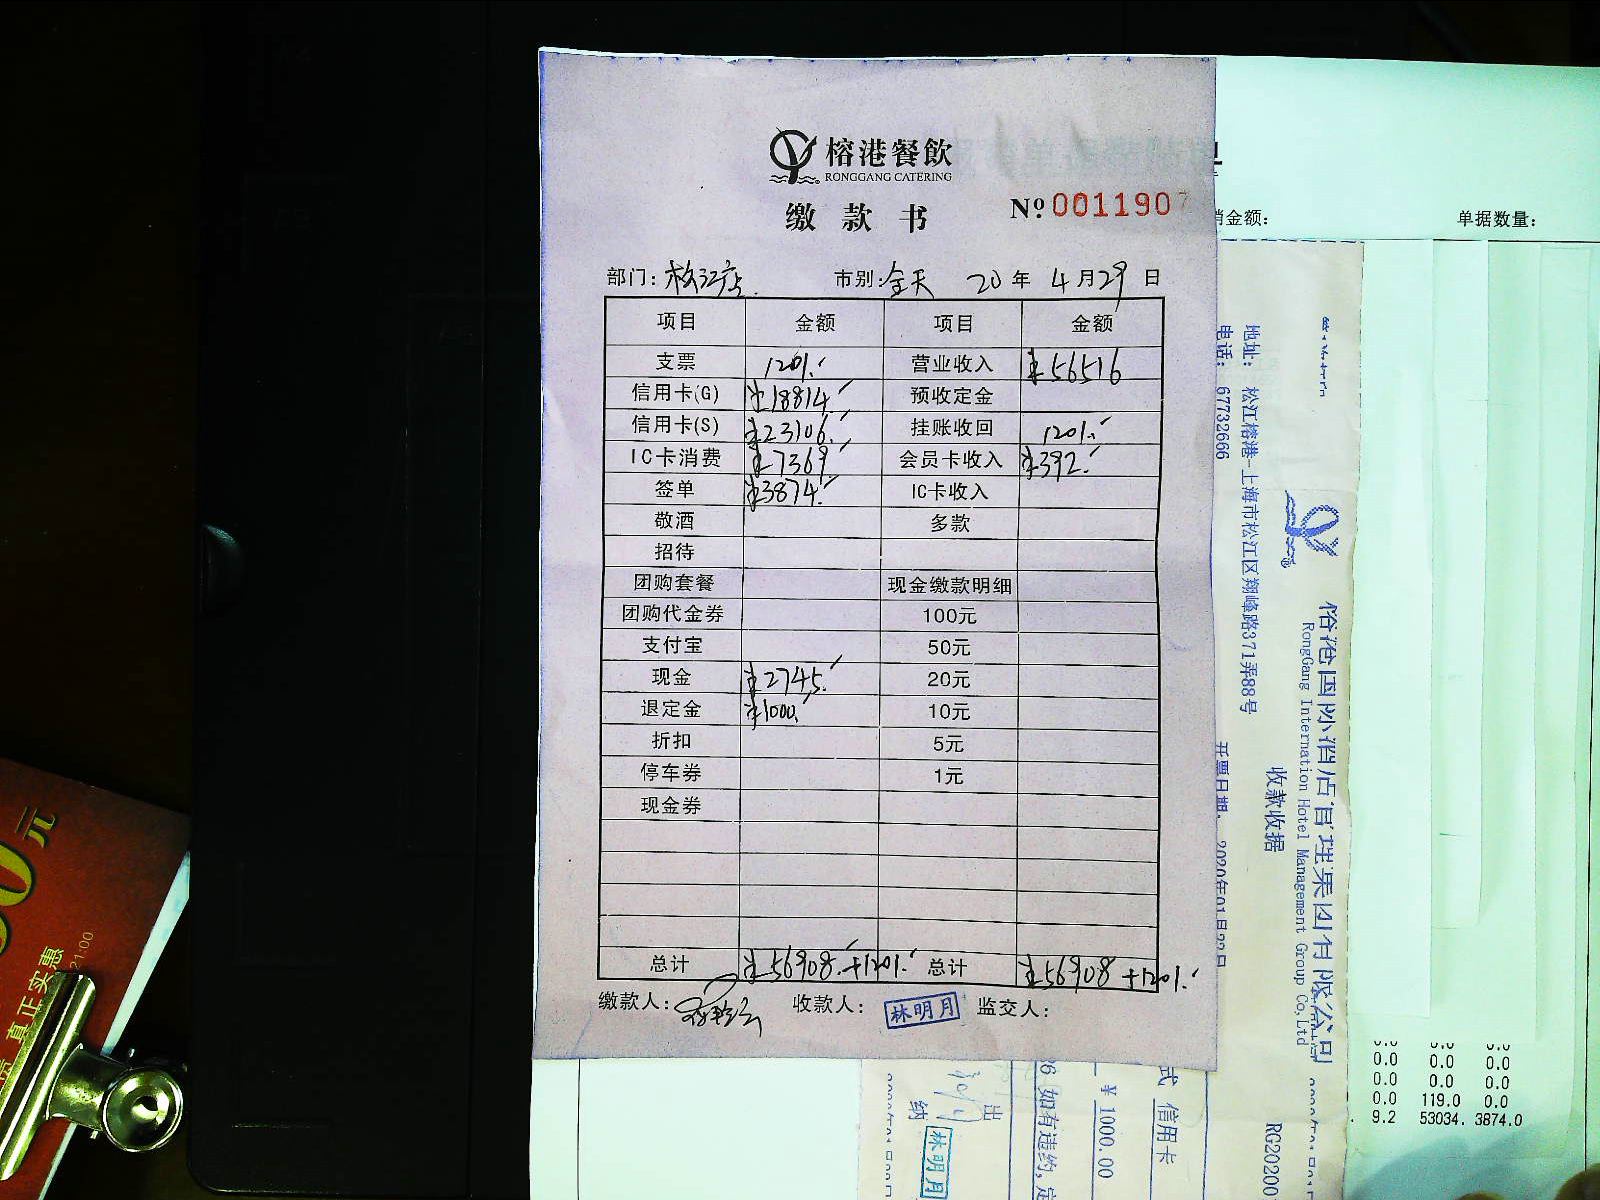 榕港餐飲
RONGGANG CATERING
缴款书
№ 0011907
部门: 松江店 市别: 全天 20年4月29日
项目 金额 项目 金额
支票 1201. 营业收入 ¥56516
信用卡(G) ¥18814. 预收定金
信用卡(S) ¥23106. 挂账收回 1201.
IC卡消费 ¥7369. 会员卡收入 ¥392.
签单 ¥3874. IC卡收入
敬酒 多款
招待
团购套餐 现金缴款明细
团购代金券 100元
支付宝 50元
现金 ¥2745. 20元
退定金 ¥1000. 10元
折扣 5元
停车券 1元
现金券
总计 ¥56908.+1201. 总计 ¥56908+1201.
缴款人: 收款人: 林明月 监交人:
金额: 单据数量:
地址: 松江榕港-上海市松江区翔峰路371弄88号
电话: 67732666
RongGang International Hotel Management Group Co,Ltd
收款收据
开票日期:
信用卡
¥ 1000.00
如有违约,定
出纳
林明月
RG20200
0.0 0.0 0.0
0.0 0.0 0.0
0.0 119.0 0.0
9.2 53034. 3874.0
元
真正实惠
21:00